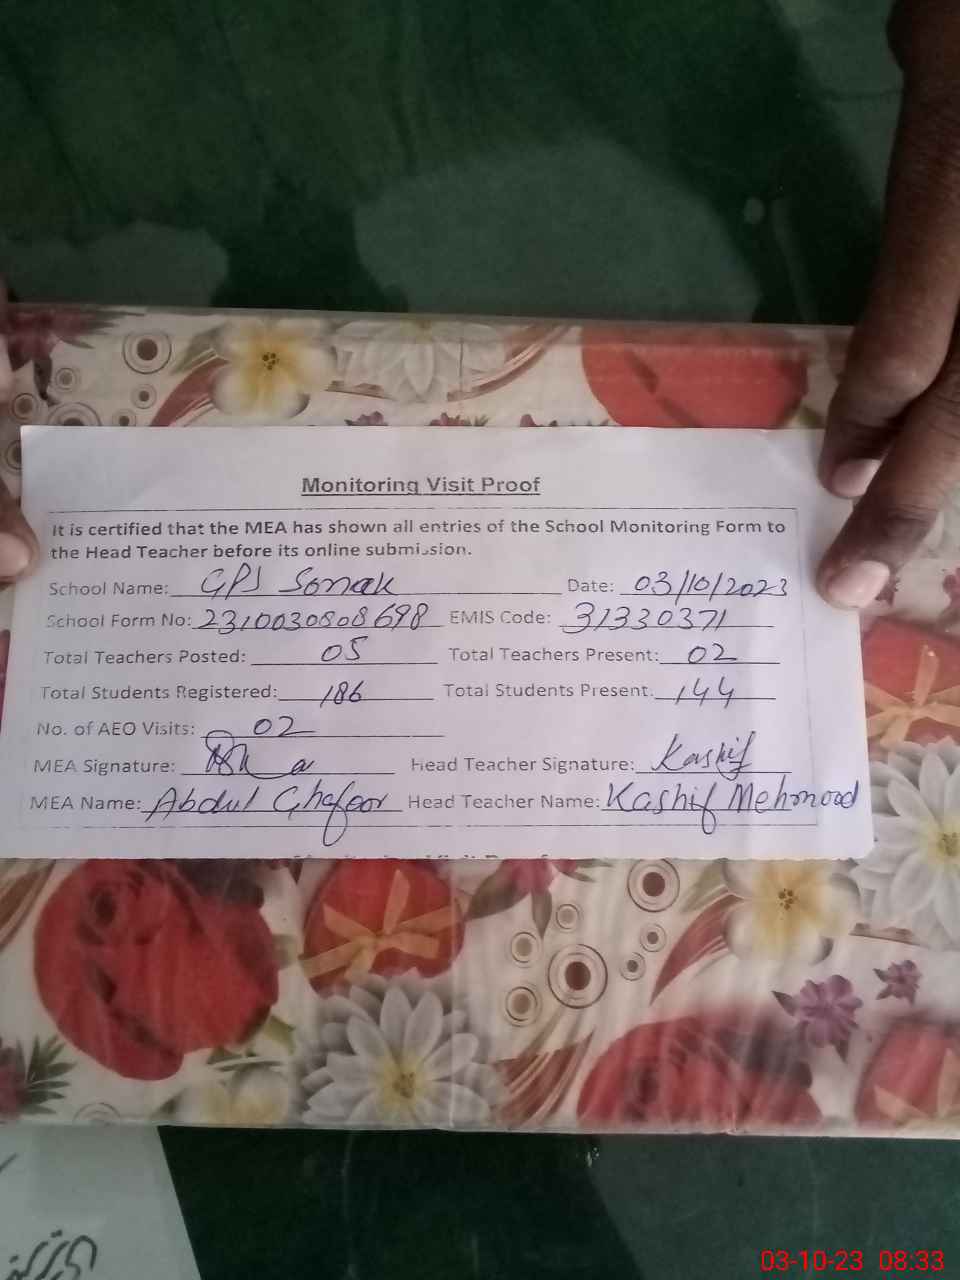 Monitoring Visit Proof
It is certified that the MEA has shown all entries of the School Monitoring Form to
the Head Teacher before its online submission.
School Name: GPS Sonak Date: 03/10/2023
School Form No: 2310030808698 EMIS Code: 31330371
Total Teachers Posted: 05 Total Teachers Present: 02
Total Students Registered: 186 Total Students Present: 144
No. of AEO Visits: 02
MEA Signature: Head Teacher Signature: Kashif
MEA Name: Abdul Ghafoor Head Teacher Name: Kashif Mehmood
03-10-23 08:33